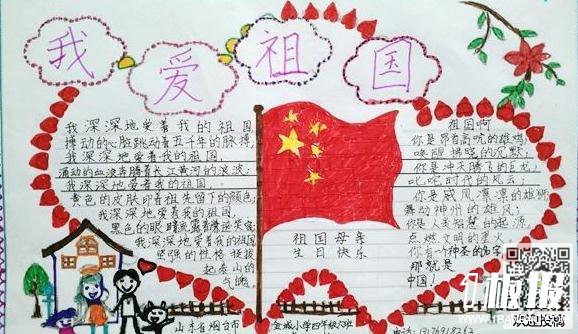 我爱祖国
我深深地爱着我的祖国,
搏动的心脏跳动着五千年的脉搏,
我深深地爱着我的祖国,
涌动的血液奔腾着长江黄河的浪波;
我深深地爱着我的祖国,
黄色的皮肤印着祖先留下的颜色;
我深深地爱着我的祖国,
黑色的眼睛
我深深地爱着我的祖国,
坚强的性格挺拔
起泰山的
气魄
祖国母亲
生日快乐
祖国啊
你是昂首高吭的雄鸡,
唤醒拂晓的沉默;
你是冲天腾飞的巨龙,
叱咤时代的风云;
你是威风凛凛的雄狮,
舞动神州的雄风;
你是人类智慧的起源,
点燃文明的星火
你有个神圣的名字,
那就是
中国!
山东省烟台市
金城小学四年级六班